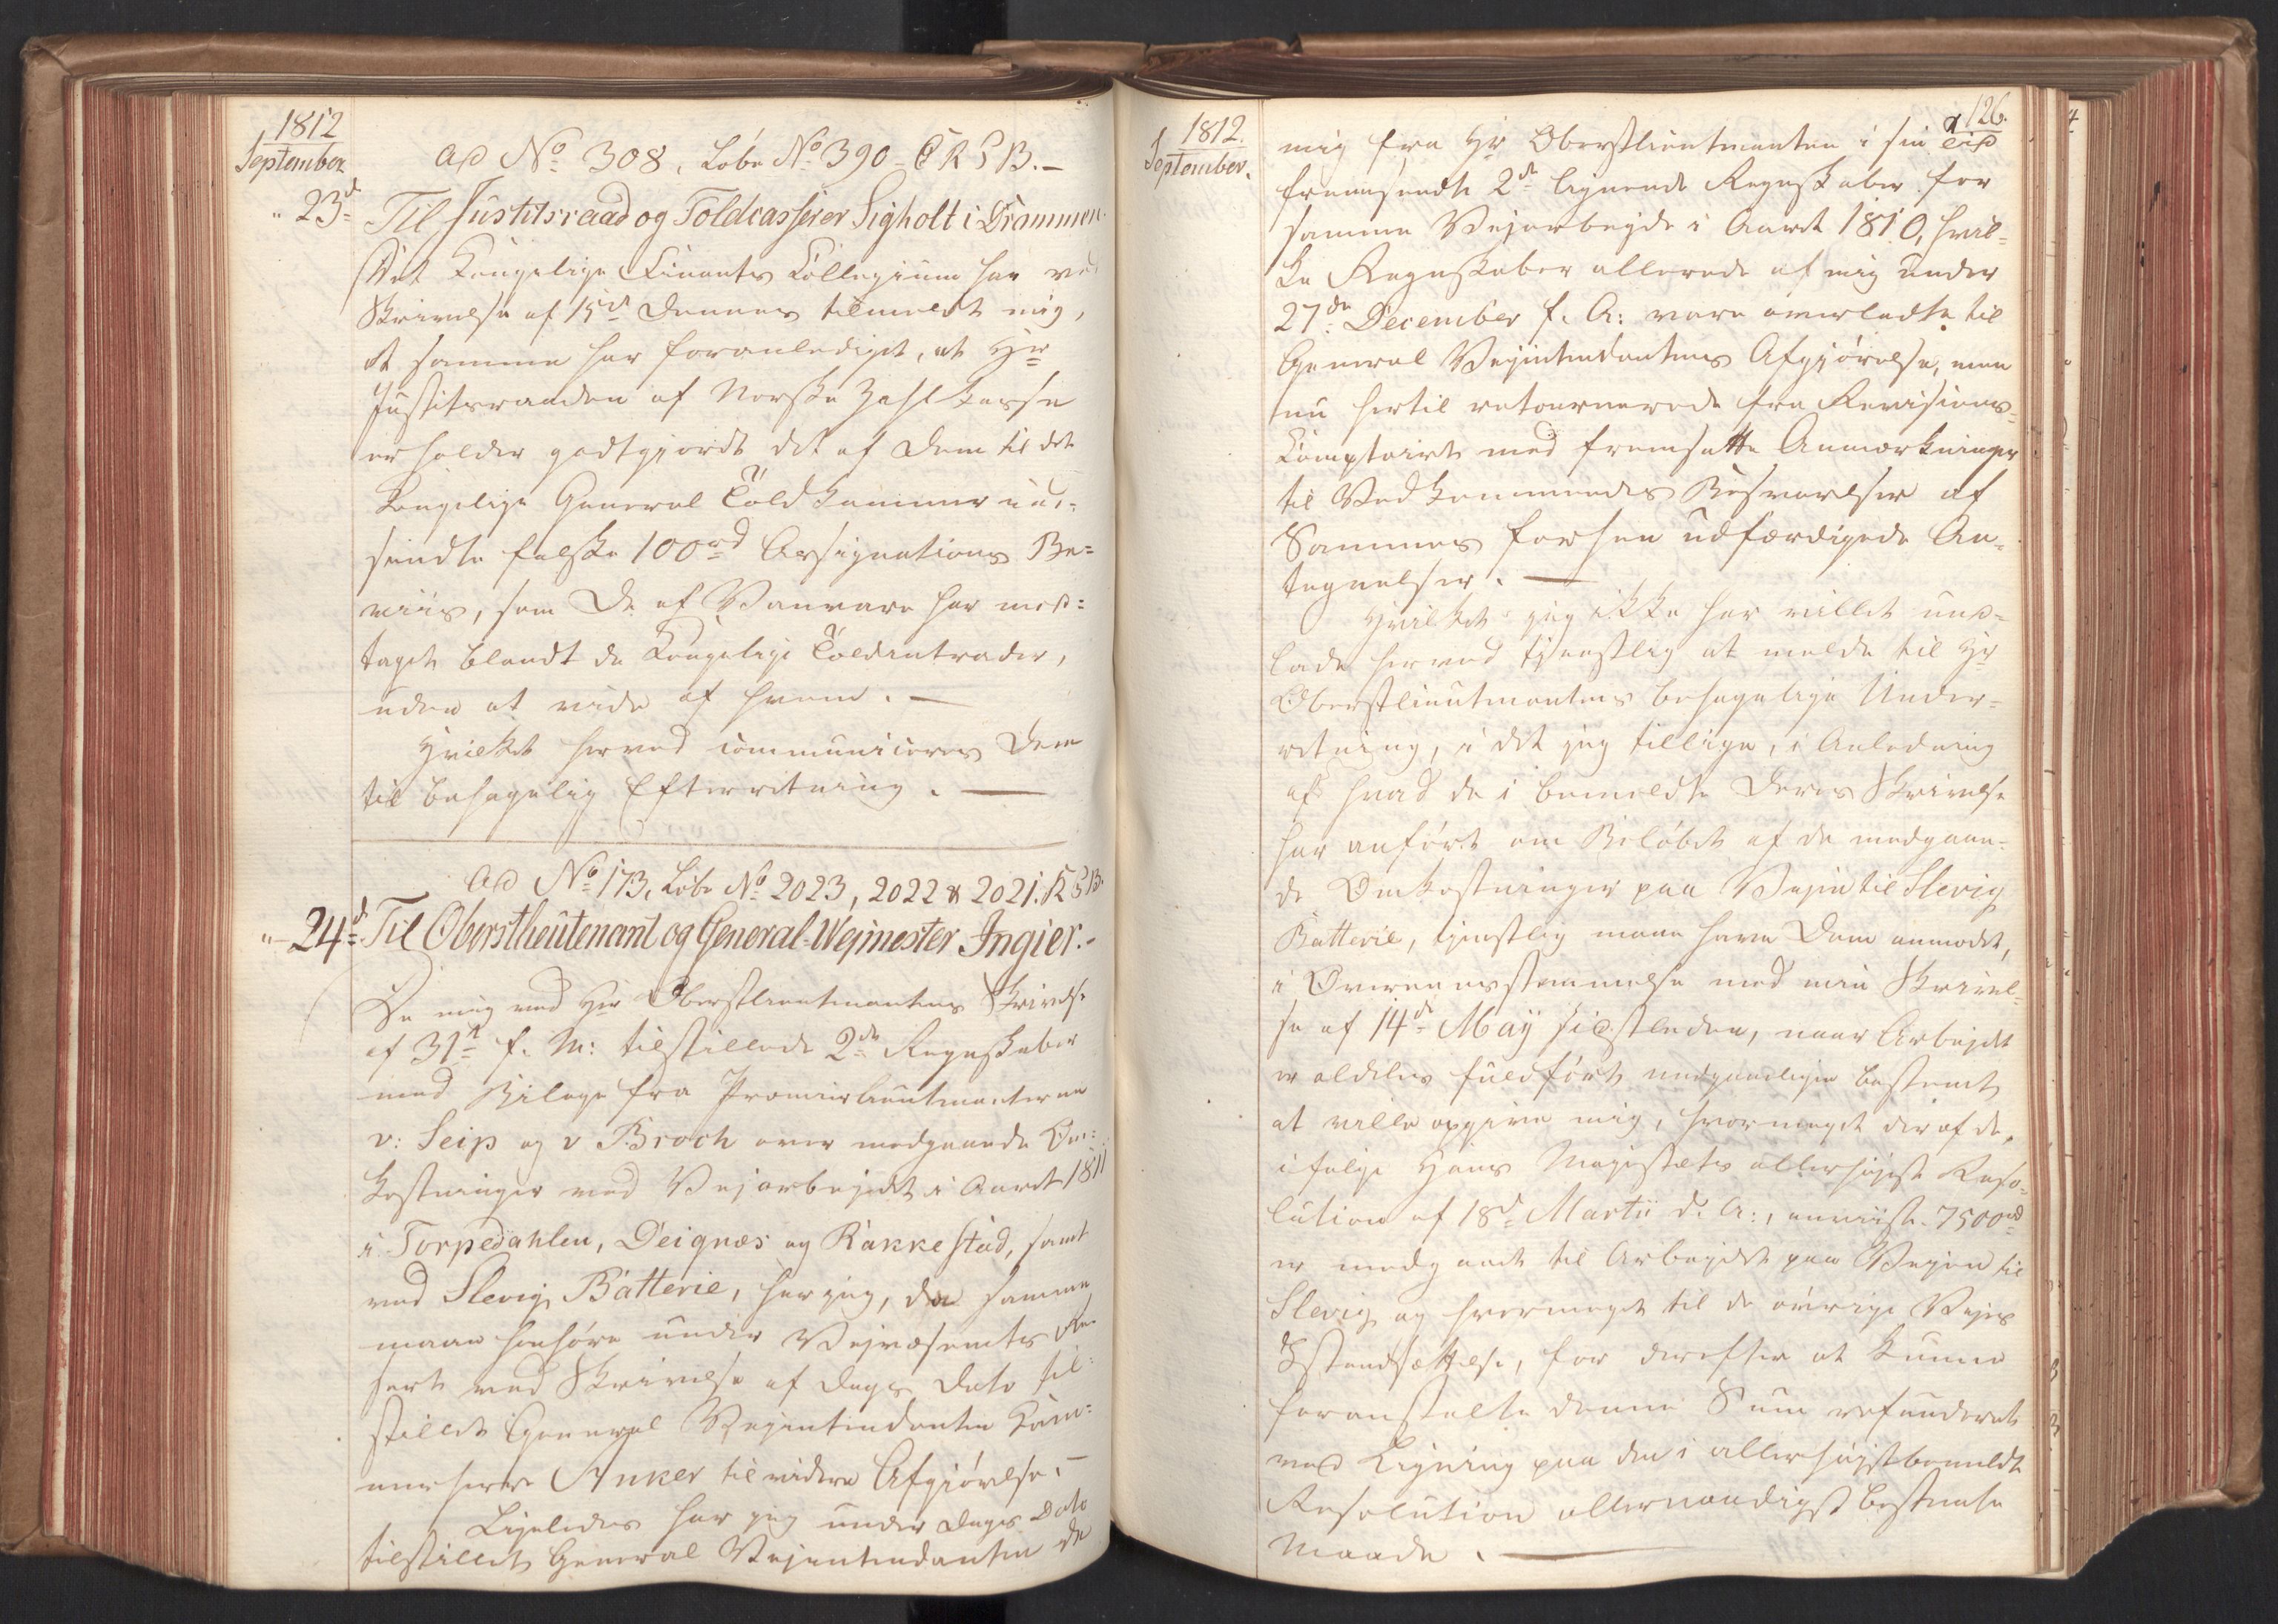 1812
September
ad No 308, Løbe No 390 - C K P B. -
" 23d
Til Justitsraad og Toldcasserer Sigholt i Drammen.
Det Kongelige Finants Collegium har ved
Skrivelse af 15de dennes tilmeldt mig,
at samme har foranlediget, at Hr
Justitsraaden af Norske Zahlkasse
erholder godtgjordt det af Dem til det
Kongelige General Toldkammer ind-
sendte falske 100rd Assignations Be-
viis, som De af Vanvare har mod-
taget blandt de Kongelige Toldintrader,
uden at vide af hvem. —
Hvilket herved communiceres Dem
til behagelig Efterretning. —
ad No 173, Løbe No 2023, 2022 & 2021. K P B.
" 24d Til Oberstlieutenant og General-Veimester Ingier. -
De mig med Hr Oberstlieutenantens Skrivelse
af 31te f. M: tilstillede 2de Regnskaber
med Bilage fra Premierlieutenanterne
v: Seip og v Broch over medgaaede Om-
kostninger ved Vejarbejdet i Aaret 1811
i Torpedahlen, Deignæs og Rakkestad, samt
ved Slevig Batterie, har jeg, da samme
maae henhøre under Vejvæsenets Re-
sort med Skrivelse af Dags Dato til-
stillet General Vejintendanten Kam-
merherre Anker til videre Afgiørelse. -
Ligeledes har jeg under Dags Dato
tilstillet General Vejintendanten de
1812.
September.
126.
mig fra Hr Oberstlieutenanten i sin Tid
fremsendte 2de lignende Regnskaber for
samme Vejarbejde i Aaret 1810, hvil-
ke Regnskaber allerede af mig under
27de December f. A: vare overladte til
General Vejintendantens Afgjørelse, men
nu hertil retournerede fra Revisions-
Comptoiret med fremsatte Anmærkninger
til Vedkommendes Besvarelser af
Sammes forhen udfærdigede An-
tegnelser. —
Hvilket jeg ikke har villet und-
lade herved tjenstlig at melde til Hr
Oberstlieutenantens behagelige Under-
retning, i det jeg tillige, i Anledning
af hvad de i bemeldte Deres Skrivelse
har anført om Beløbet af de medgaae-
de Omkostninger paa Vejen til Slevig
Batterie, tjenstlig maae have Dem anmodet,
i Overeensstemmelse med min Skrivel-
se af 14de May sidstleden, naar Arbejdet
er aldeles fuldført undgaaeligen bestemt
at ville opgive mig, hvormeget der af de,
ifølge Hans Majestæts allerhøjeste Reso-
lution af 18de Martii d. A:, anviiste 7500rd
er medgaaet til Arbejdet paa Vejen til
Slevig og hvormeget til de øvrige Vejes
Istandsættelse, for derefter at kunne
foranstalte denne Sum refunderet
ved Ligning paa den i allerhøjstbemeldte
Resolution allernaadigst bestemte
Maade. —